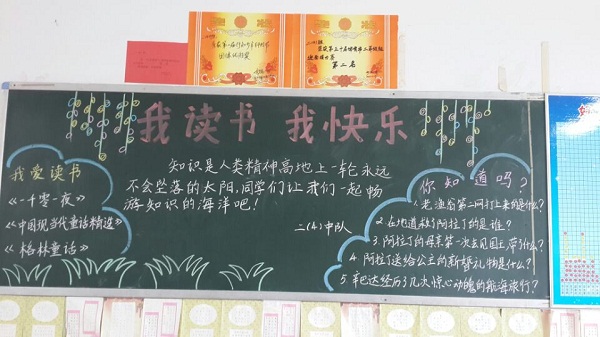 我读书 我快乐
我爱读书
《一千零一夜》
《中国现当代童话精选》
《格林童话》
知识是人类精神高地上一轮永远
不会坠落的太阳,同学们让我们一起畅
游知识的海洋吧!
二(4)中队
你知道吗?
1.老渔翁第二网打上来的是什么?
2.在地道救了阿拉丁的是谁?
3.阿拉丁的母亲第一次去见国王,带了什么?
4.阿拉丁送给公主的新婚礼物是什么?
5.辛巴达经历了几次惊心动魄的航海旅行?
第二名